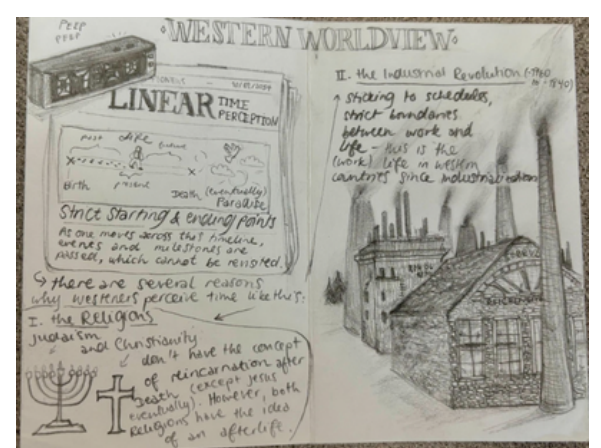 PEEP
PEEP
WESTERN WORLDVIEW
LINEAR TIME
PERCEPTION
past life future
present
Birth
Death (eventually)
Paradise
Strict starting & ending points
As one moves across this timeline,
events and milestones are
passed, which cannot be revisited.
there are several reasons
why westeners perceive time like this:
I. the Religions
Judaism
and Christianity
don't have the concept
of reincarnation after
Death (except Jesus
eventually). However, both
Religions have the idea
of an afterlife.
II. the Industrial Revolution (~1760
to ~1840)
sticking to schedules,
strict boundaries
between work and
life - this is the
(work) life in western
countries since industrialization